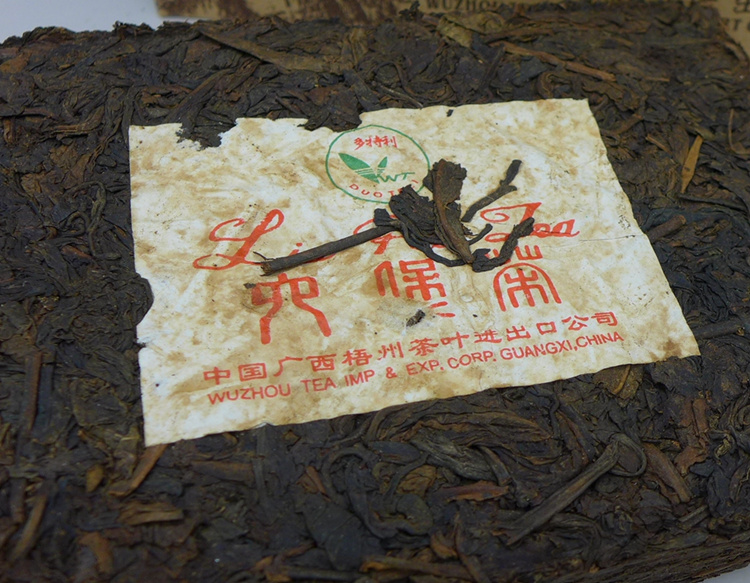 WUZHOU
多特利
WT
DUOTE
Tea
六保茶
中国广西梧州茶叶进出口公司
WUZHOU TEA IMP & EXP. CORP. GUANGXI, CHINA